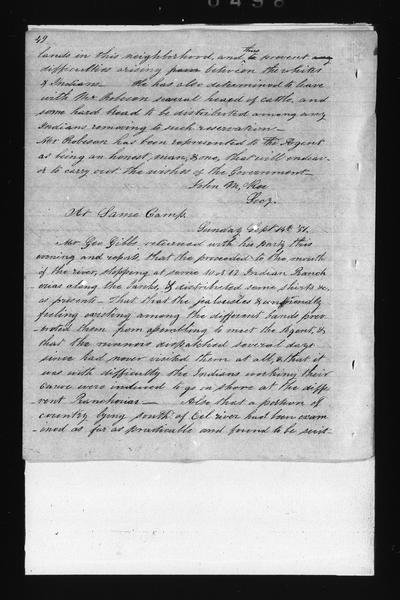 0498
49
lands in this neighborhood, and thus to prevent any
difficulties arising from between the whites
& Indians— He has also determined to leave
with Mr Robeson several head of cattle, and
some hard bread to be distributed among any
Indians removing to such reservation—
Mr Robeson has been represented to the Agent
as being an honest, man, & one, that will endeav-
or to carry out the wishes of the Government—
John McKee
Secy.
At Same Camp.
Sunday Sept 14th 51.
Mr Geo Gibbs, returned with his party this
evening and reports, that the proceeded to the mouth
of the river, stopping at some 10 or 12 Indian Ranch
erias along the banks, & distributed some shirts &c.
as presents— That the jealousies & unfriendly
feeling existing among the different bands prev-
ented them from assembling to meet the Agent, &
that the runners dispatched several days
since had never visited them at all, & that it
was with difficulty the Indians working their
canoe were induced to go on shore at the diffe
rent Rancherias— Also that a portion of
country lying south of Eel river had been exam
-ined as far as practicable and found to be suit-